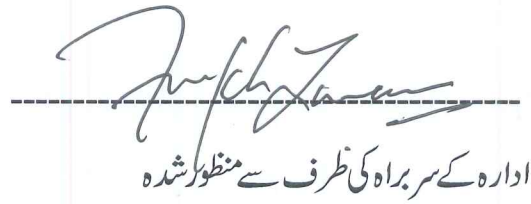 ادارہ کے سربراہ کی طرف سے منظور شدہ